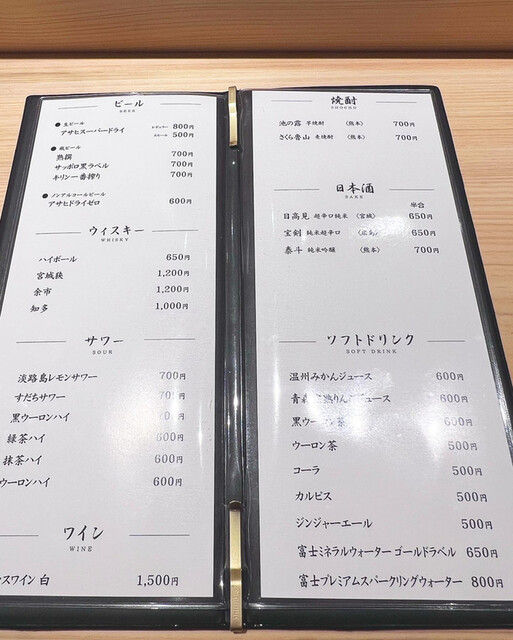 ビール
BEER
● 生ビール
アサヒスーパードライ レギュラー 800円
スモール 500円
● 瓶ビール
熟撰 700円
サッポロ黒ラベル 700円
キリン一番搾り 700円
● ノンアルコールビール
アサヒドライゼロ 600円
ウィスキー
WHISKY
ハイボール 650円
宮城狭 1,200円
余市 1,200円
知多 1,000円
サワー
SOUR
淡路島レモンサワー 700円
すだちサワー
黒ウーロンハイ
緑茶ハイ 600円
抹茶ハイ 600円
ウーロンハイ 600円
ワイン
WINE
スワイン 白 1,500円
焼酎
SHOCHU
池の露 芋焼酎 〈熊本〉 700円
さくら魯山 麦焼酎 〈熊本〉 700円
日本酒
SAKE
半合
日高見 超辛口純米 〈宮城〉 650円
宝剣 純米超辛口 〈広島〉 650円
泰斗 純米吟醸 〈熊本〉 700円
ソフトドリンク
SOFT DRINK
温州みかんジュース 600円
青森 熟りんごジュース 600円
黒ウーロン茶 600円
ウーロン茶 500円
コーラ 500円
カルピス 500円
ジンジャーエール 500円
富士ミネラルウォーター ゴールドラベル 650円
富士プレミアムスパークリングウォーター 800円